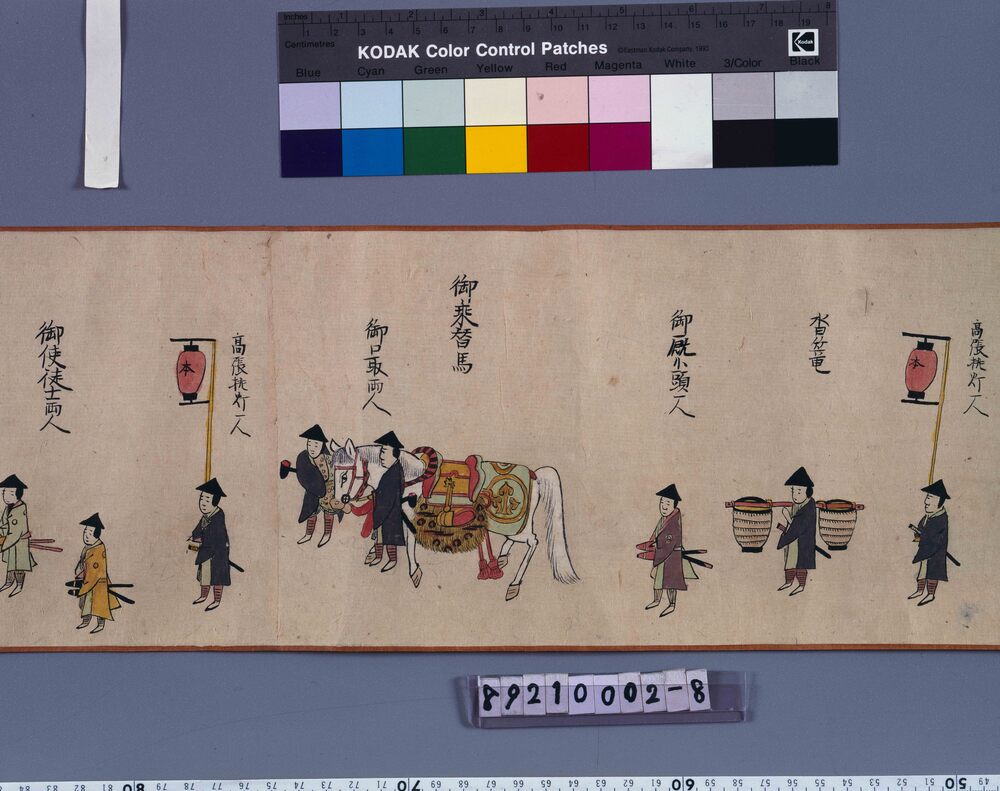 Inches 1 2 3 4 5 6 7 8
Centimetres 1 2 3 4 5 6 7 8 9 10 11 12 13 14 15 16 17 18 19
KODAK Color Control Patches ©Eastman Kodak Company, 1993 Kodak
Blue Cyan Green Yellow Red Magenta White 3/Color Black
高張挑灯一人
本
御厩小頭一人
御乗替馬
御口取両人
高張挑灯一人
本
御使徒士両人
89210002-8
82 81 80 79 78 77 76 75 74 73 72 71 70 69 68 67 66 65 64 63 62 61 60 59 58 57 56 55 54 53 52 51 50 49